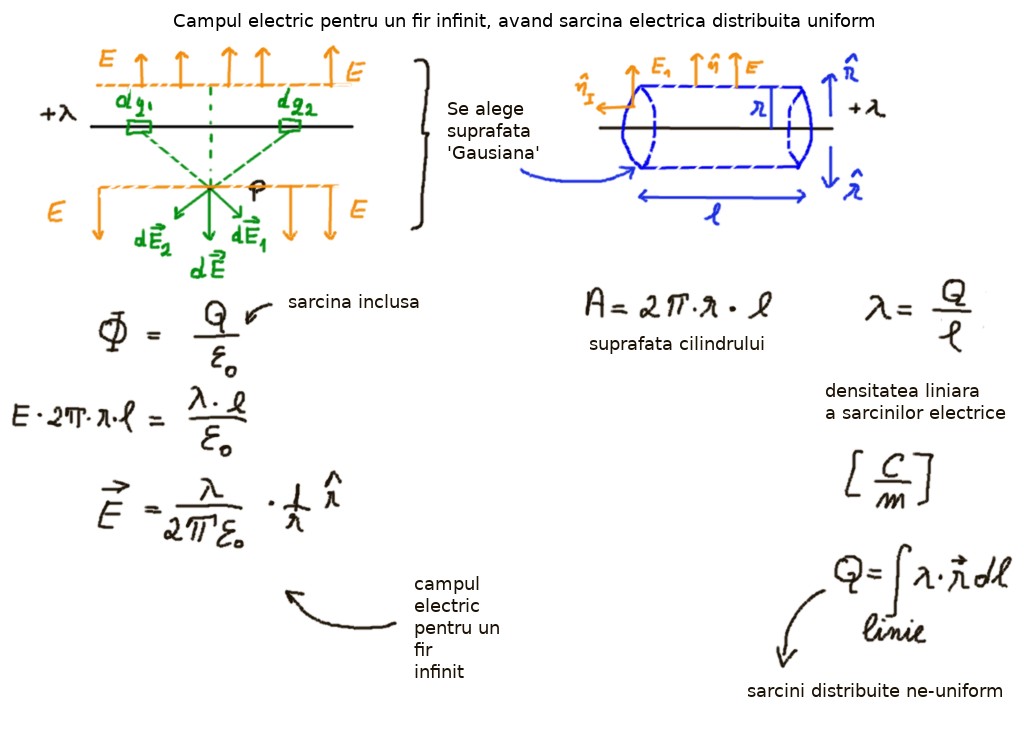 Campul electric pentru un fir infinit, avand sarcina electrica distribuita uniform
E E
dq₁ dq₂
+λ
P
E E
dE⃗₂ dE⃗₁
dE⃗
Se alege
suprafata
'Gausiana'
n̂_I E₁ n̂ E r̂
r +λ
r̂
l
Φ = Q / ε₀
sarcina inclusa
E · 2π · r · l = λ · l / ε₀
E⃗ = λ / 2πε₀ · 1/r r̂
campul
electric
pentru un
fir
infinit
A = 2π · r · l
suprafata cilindrului
λ = Q / l
densitatea liniara
a sarcinilor electrice
[C/m]
Q = ∫ λ · r⃗ dl
linie
sarcini distribuite ne-uniform